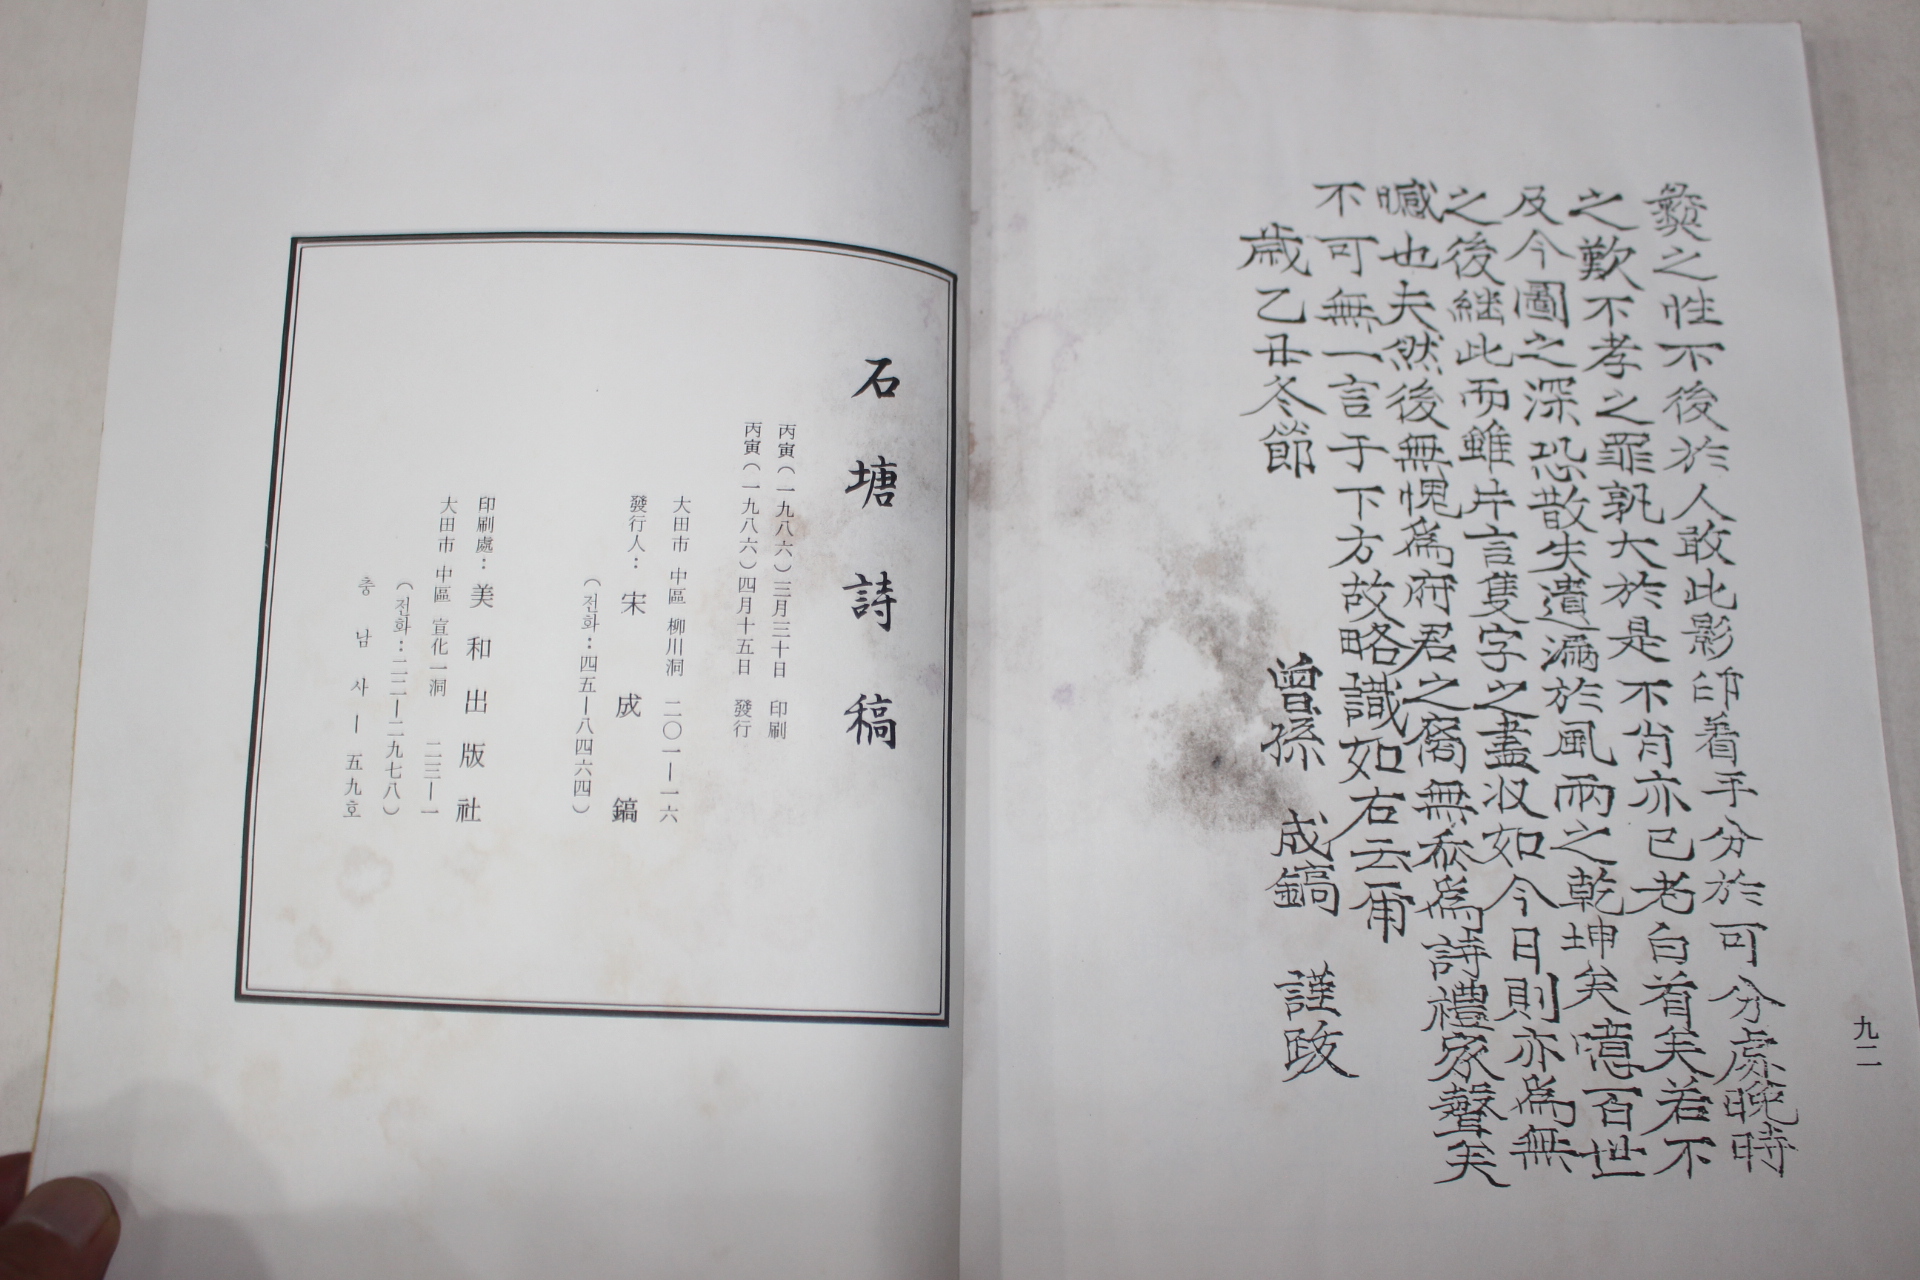 彜之性不後於人敢此影印着手分於可分處晩時
之歎不孝之罪孰大於是不肖亦已老白首矣若不
及今圖之深恐散失遺漏於風雨之乾坤矣噫百世
之後繼此而雖片言隻字之盡收如今日則亦爲無
憾也夫然後無愧爲府君之裔無忝爲詩禮家聲矣
不可無一言于下方故略識如右云爾
歲乙丑冬節
曾孫 成鎬 謹跋
九二
石塘詩稿
丙寅(一九八六)三月三十日 印刷
丙寅(一九八六)四月十五日 發行
大田市 中區 柳川洞 二〇一―一六
發行人: 宋成鎬
(전화:四五―八四六四)
印刷處: 美和出版社
大田市 中區 宣化一洞 二三―一
(전화:二二―二九七八)
충남 사―五九호